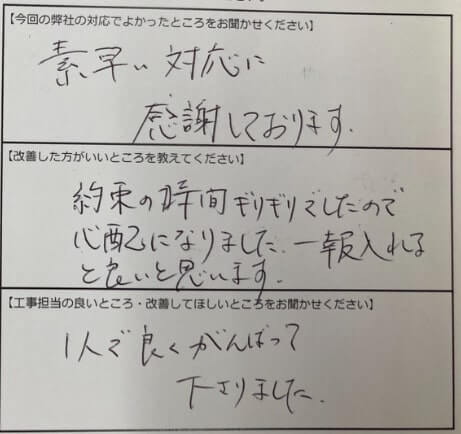 【今回の弊社の対応でよかったところをお聞かせください】
素早い対応に
感謝しております.
【改善した方がいいところを教えてください】
約束の時間ギリギリでしたので
心配になりました.一報入れる
と良いと思います.
【工事担当の良いところ・改善してほしいところをお聞かせください】
1人で良くがんばって
下さりました.